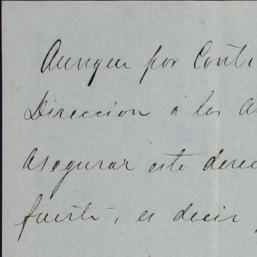 Aunque por Cont
Direccion á los a
asegurar este derec
fuerte, es decir